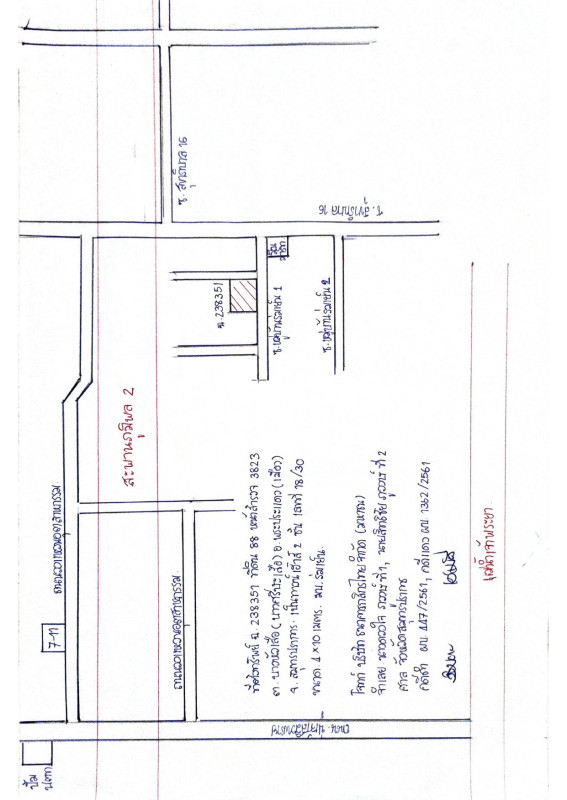 ซ. สุขาภิบาล 16
ซ. สุขาภิบาล 16
ฉ. 238351
ซ. หมู่บ้านร่มเย็น 1
ซ. หมู่บ้านร่มเย็น 2
สะพานภูมิพล 2
ถนนวงแหวนอุตสาหกรรม
7-11
ถนนวงแหวนอุตสาหกรรม
ปั๊ม
ปตท
ถนน ปู่เจ้าสมิงพราย
แม่น้ำเจ้าพระยา
ที่ตั้งทรัพย์ ฉ. 238351 ที่ดิน 88 หน้าสำรวจ 3823
ต. บางหัวเสือ ( บางศรีษะเสือ ) อ. พระประแดง ( เมือง )
จ. สมุทรปราการ เป็นทาวน์เฮ้าส์ 2 ชั้น เลขที่ 78/30
ขนาด 4 × 10 เมตร. มบ. ร่มเย็น
โจทก์ บริษัท ธนาคารกสิกรไทย จำกัด (มหาชน)
จำเลย ที่ 1, ที่ 2
ศาล จังหวัดสมุทรปราการ
คดีดำ ผบ 447/2561, คดีแดง ผบ 1362/2561